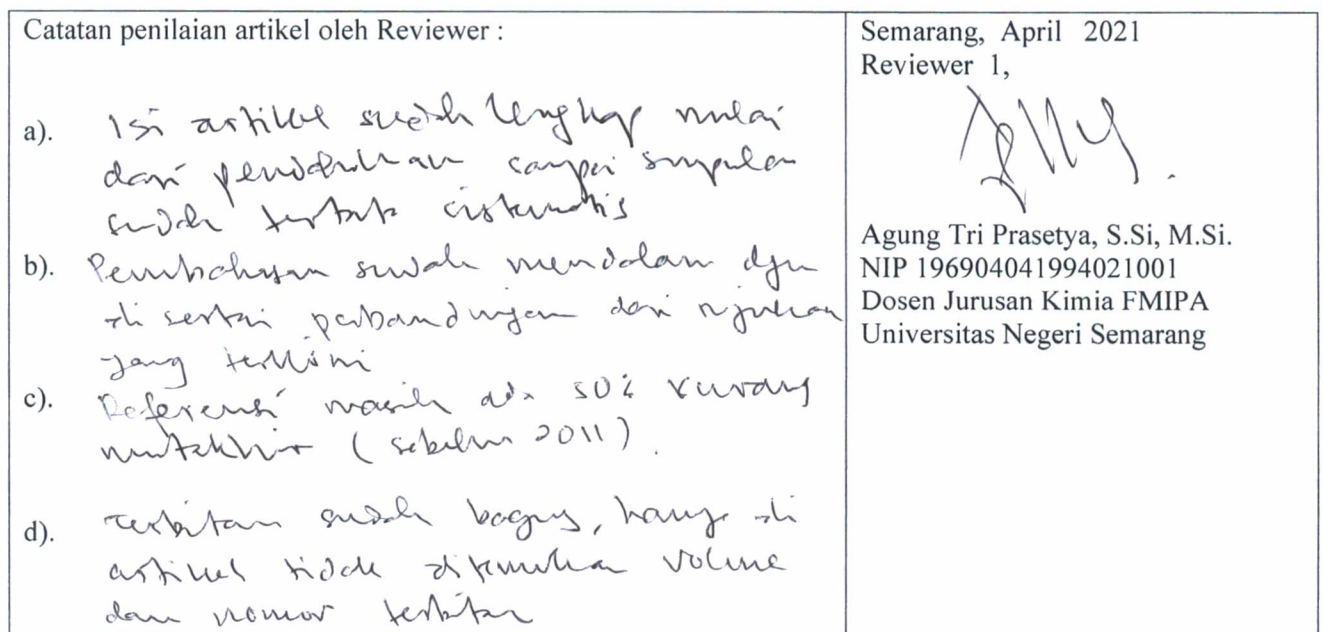 Catatan penilaian artikel oleh Reviewer :
a). Isi artikel sudah lengkap mulai
dari pendahuluan sampai simpulan
sudah tertata sistematis
b). Pembahasan sudah mendalam dgn
disertai perbandingan dari rujukan
yang terkini
c). Referensi masih ada 50% kurang
mutakhir (sebelum 2011).
d). Terbitan sudah bagus, hanya di
artikel tidak ditemukan volume
dan nomor terbitan
Semarang, April 2021
Reviewer 1,
Agung Tri Prasetya, S.Si, M.Si.
NIP 196904041994021001
Dosen Jurusan Kimia FMIPA
Universitas Negeri Semarang